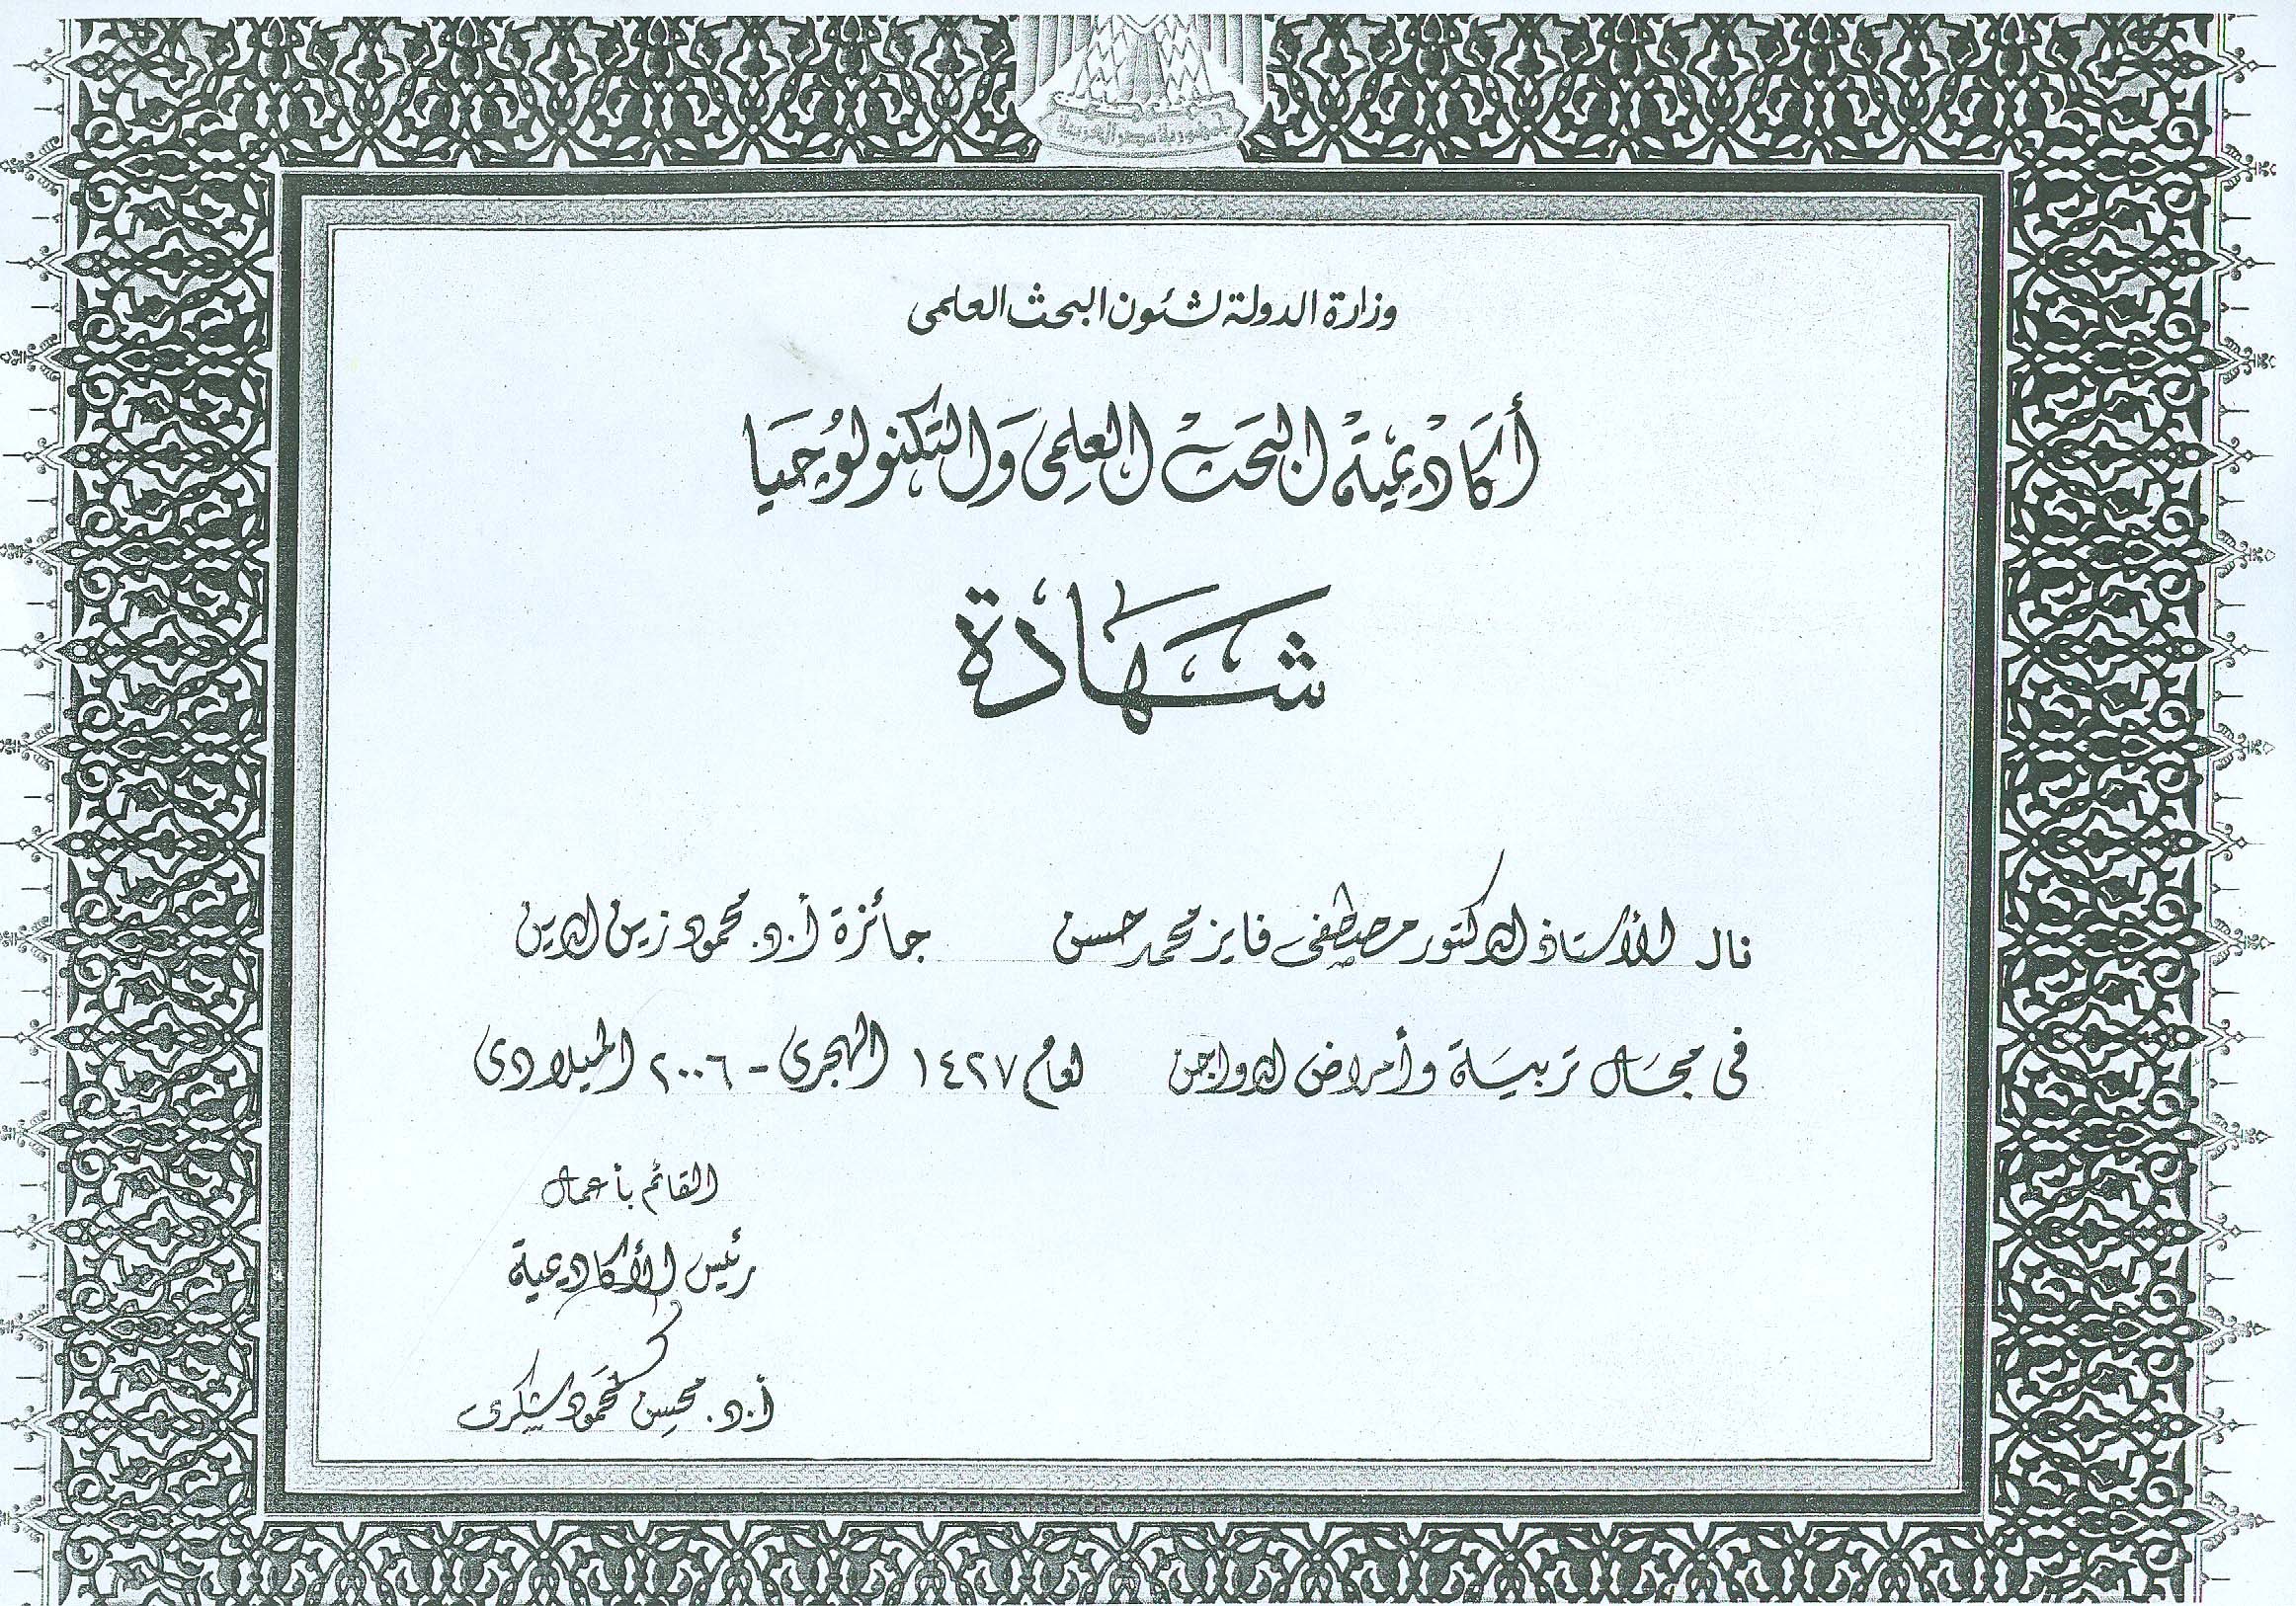 جمهورية مصر العربية
وزارة الدولة لشئون البحث العلمى
أكَاديميَة البَحَث العِلمِى وَالتَكنولوُجيَا
شَهَادة
نال الأستاذ الدكتور مصطفى فايز محمد حسن جائزة أ.د. محمود زين الدين
فى مجَال تربيَة وأمراض الدواجن لعام ١٤٢٧ الهجرى - ٢٠٠٦ الميلادى
القائم بأعمال
رئيس الأكاديمية
أ.د. محسن محمود شكرى